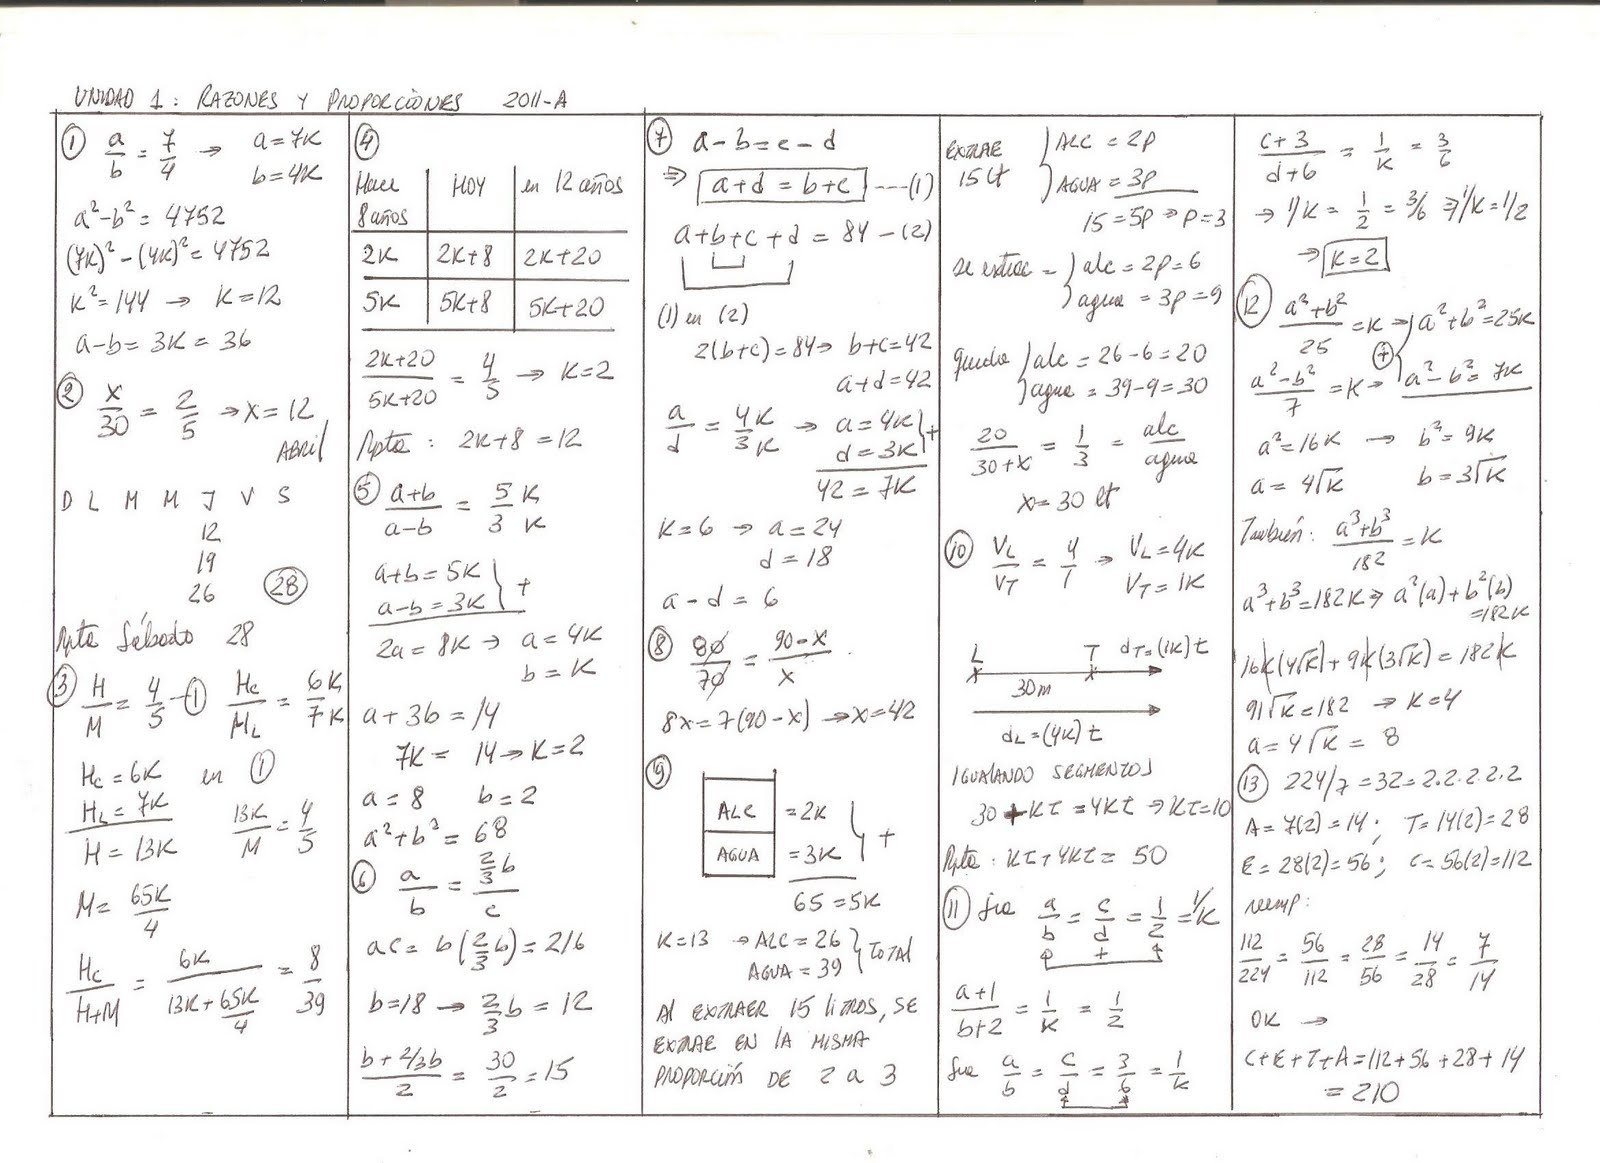 UNIDAD 1: RAZONES Y PROPORCIONES 2011-A
① a/b = 7/4 → a = 7K
b = 4K
a² - b² = 4752
(7K)² - (4K)² = 4752
K² = 144 → K = 12
a - b = 3K = 36
② x/30 = 2/5 → x = 12
ABRIL
D L M M J V S
12
19
26 (28)
Rpta Sábado 28
③ H/M = 4/5 - ① Hc/ML = 6K/7K
Hc = 6K en ①
HL = 7K
H = 13K 13K/M = 4/5
M = 65K/4
Hc/H+M = 6K/(13K + 65K/4) = 8/39
④
Hace 8 años | HOY | en 12 años
2K | 2K+8 | 2K+20
5K | 5K+8 | 5K+20
2K+20/5K+20 = 4/5 → K = 2
Rpta : 2K+8 = 12
⑤ a+b/a-b = 5K/3K
a+b = 5K
a-b = 3K } +
2a = 8K → a = 4K
b = K
a + 3b = 14
7K = 14 → K = 2
a = 8 b = 2
a² + b² = 68
⑥ a/b = (2/3 b)/c
ac = b(2/3 b) = 216
b = 18 → 2/3 b = 12
b + 2/3b/2 = 30/2 = 15
⑦ a - b = c - d
⇒ a+d = b+c ---- (1)
a+b+c+d = 84 - (2)
(1) en (2)
2(b+c) = 84 → b+c = 42
a+d = 42
a/d = 4K/3K → a = 4K
d = 3K } +
42 = 7K
K = 6 → a = 24
d = 18
a - d = 6
⑧ 80/70 = 90-x/x
8x = 7(90-x) → x = 42
⑨
ALC = 2K
AGUA = 3K } +
65 = 5K
K = 13 → ALC = 26
AGUA = 39 } TOTAL
Al EXTRAER 15 litros, SE
EXTRAE EN LA MISMA
PROPORCIÓN DE 2 a 3
EXTRAE 15 lt { ALC = 2P
AGUA = 3P
15 = 5P → P = 3
se extrae = { alc = 2P = 6
agua = 3P = 9
queda { alc = 26-6 = 20
agua = 39-9 = 30
20/30+x = 1/3 = alc/agua
x = 30 lt
⑩ VL/VT = 4/1 → VL = 4K
VT = 1K
L T dT = (1K) t
30m
dL = (4K) t
IGUALANDO SEGMENTOS
30 + Kt = 4Kt → Kt = 10
Rpta : Kt + 4Kt = 50
⑪ Sea a/b = c/d = 1/2 = 1/K
a+1/b+2 = 1/K = 1/2
Sea a/b = c/d = 3/6 = 1/K
c+3/d+6 = 1/K = 3/6
→ 1/K = 1/2 = 3/6 ⇒ 1/K = 1/2
→ K = 2
⑫ a²+b²/25 = K → a²+b² = 25K
a²-b²/7 = K → a²-b² = 7K (+)
a² = 16K → b² = 9K
a = 4√K b = 3√K
También: a³+b³/182 = K
a³+b³ = 182K ⇒ a²(a) + b²(b)
= 182K
16K(4√K) + 9K(3√K) = 182K
91√K = 182 → K = 4
a = 4√K = 8
⑬ 224/7 = 32 = 2.2.2.2.2
A = 7(2) = 14 ; T = 14(2) = 28
E = 28(2) = 56 ; C = 56(2) = 112
reemp:
112/224 = 56/112 = 28/56 = 14/28 = 7/14
OK →
C+E+T+A = 112+56+28+14
= 210